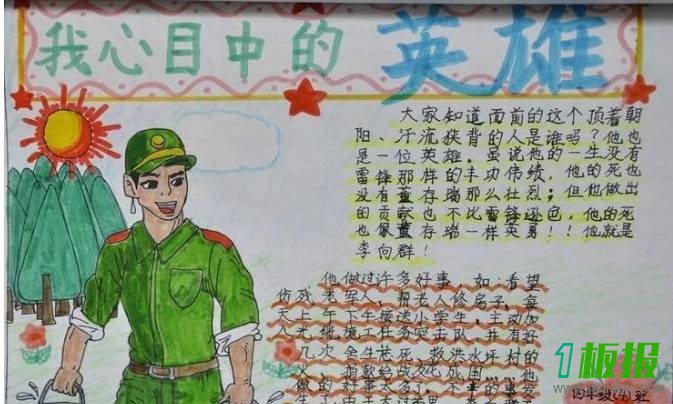 我心目中的英雄
大家知道面前的这个顶着朝
阳、汗流挟背的人是谁吗？他也
是一位英雄。虽说他的一生没有
雷锋那样的丰功伟绩，他的死也
没有董存瑞那么壮烈；但他做出
的贡献也不比雷锋逊色，他的死
也像董存瑞一样英勇！！他就是
李向群！
他做过许多好事，如：看望
伤残老军人，帮老人修房子，每
天上午下午接送小学生，主动加
入光缆施工任务突击队，并有好
几次舍生忘死，救洪水坪村的
火，捐款给战友
做的好事太多了，
四年级(4)班
1板报